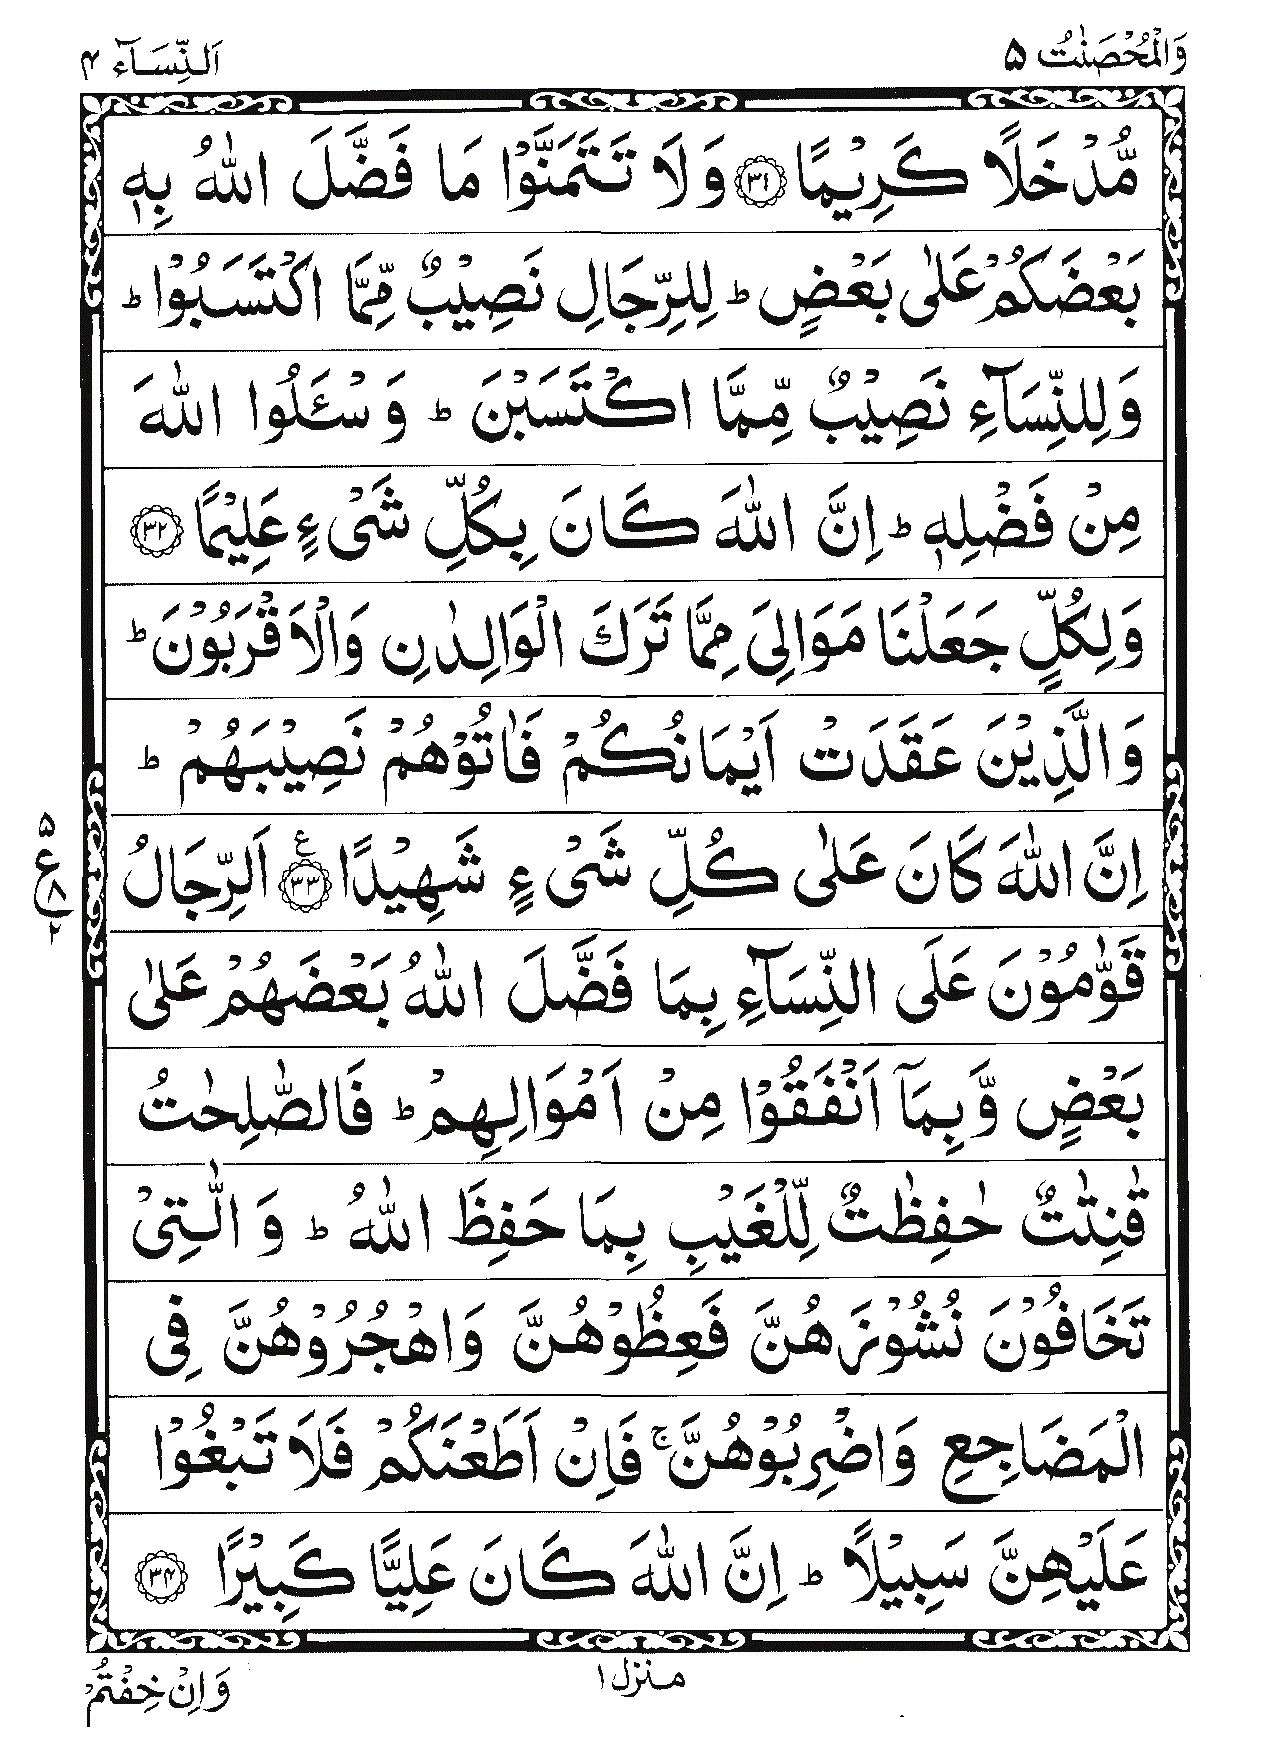 وَالْمُحْصَنٰتُ ۵
اَلنِّسَآء ۴
مُّدْخَلًا كَرِيْمًا ﴿۳۱﴾ وَ لَا تَتَمَنَّوْا مَا فَضَّلَ اللّٰهُ بِهٖ
بَعْضَكُمْ عَلٰى بَعْضٍ ؕ لِلرِّجَالِ نَصِيْبٌ مِّمَّا اكْتَسَبُوْا ؕ
وَلِلنِّسَآءِ نَصِيْبٌ مِّمَّا اكْتَسَبْنَ ؕ وَ سْئَلُوا اللّٰهَ
مِنْ فَضْلِهٖ ؕ اِنَّ اللّٰهَ كَانَ بِكُلِّ شَىْءٍ عَلِيْمًا ﴿۳۲﴾
وَلِكُلٍّ جَعَلْنَا مَوَالِىَ مِمَّا تَرَكَ الْوَالِدٰنِ وَالْاَقْرَبُوْنَ ؕ
وَالَّذِيْنَ عَقَدَتْ اَيْمَانُكُمْ فَاٰتُوْهُمْ نَصِيْبَهُمْ ؕ
اِنَّ اللّٰهَ كَانَ عَلٰى كُلِّ شَىْءٍ شَهِيْدًا ﴿۳۳﴾ ع اَلرِّجَالُ
۵
ع
۸
۲
قَوّٰمُوْنَ عَلَى النِّسَآءِ بِمَا فَضَّلَ اللّٰهُ بَعْضَهُمْ عَلٰى
بَعْضٍ وَّبِمَآ اَنْفَقُوْا مِنْ اَمْوَالِهِمْ ؕ فَالصّٰلِحٰتُ
قٰنِتٰتٌ حٰفِظٰتٌ لِّلْغَيْبِ بِمَا حَفِظَ اللّٰهُ ؕ وَ الّٰتِىْ
تَخَافُوْنَ نُشُوْزَهُنَّ فَعِظُوْهُنَّ وَاهْجُرُوْهُنَّ فِى
الْمَضَاجِعِ وَاضْرِبُوْهُنَّ ۚ فَاِنْ اَطَعْنَكُمْ فَلَا تَبْغُوْا
عَلَيْهِنَّ سَبِيْلًا ؕ اِنَّ اللّٰهَ كَانَ عَلِيًّا كَبِيْرًا ﴿۳۴﴾
منزل ۱
وَاِنْ خِفْتُمْ